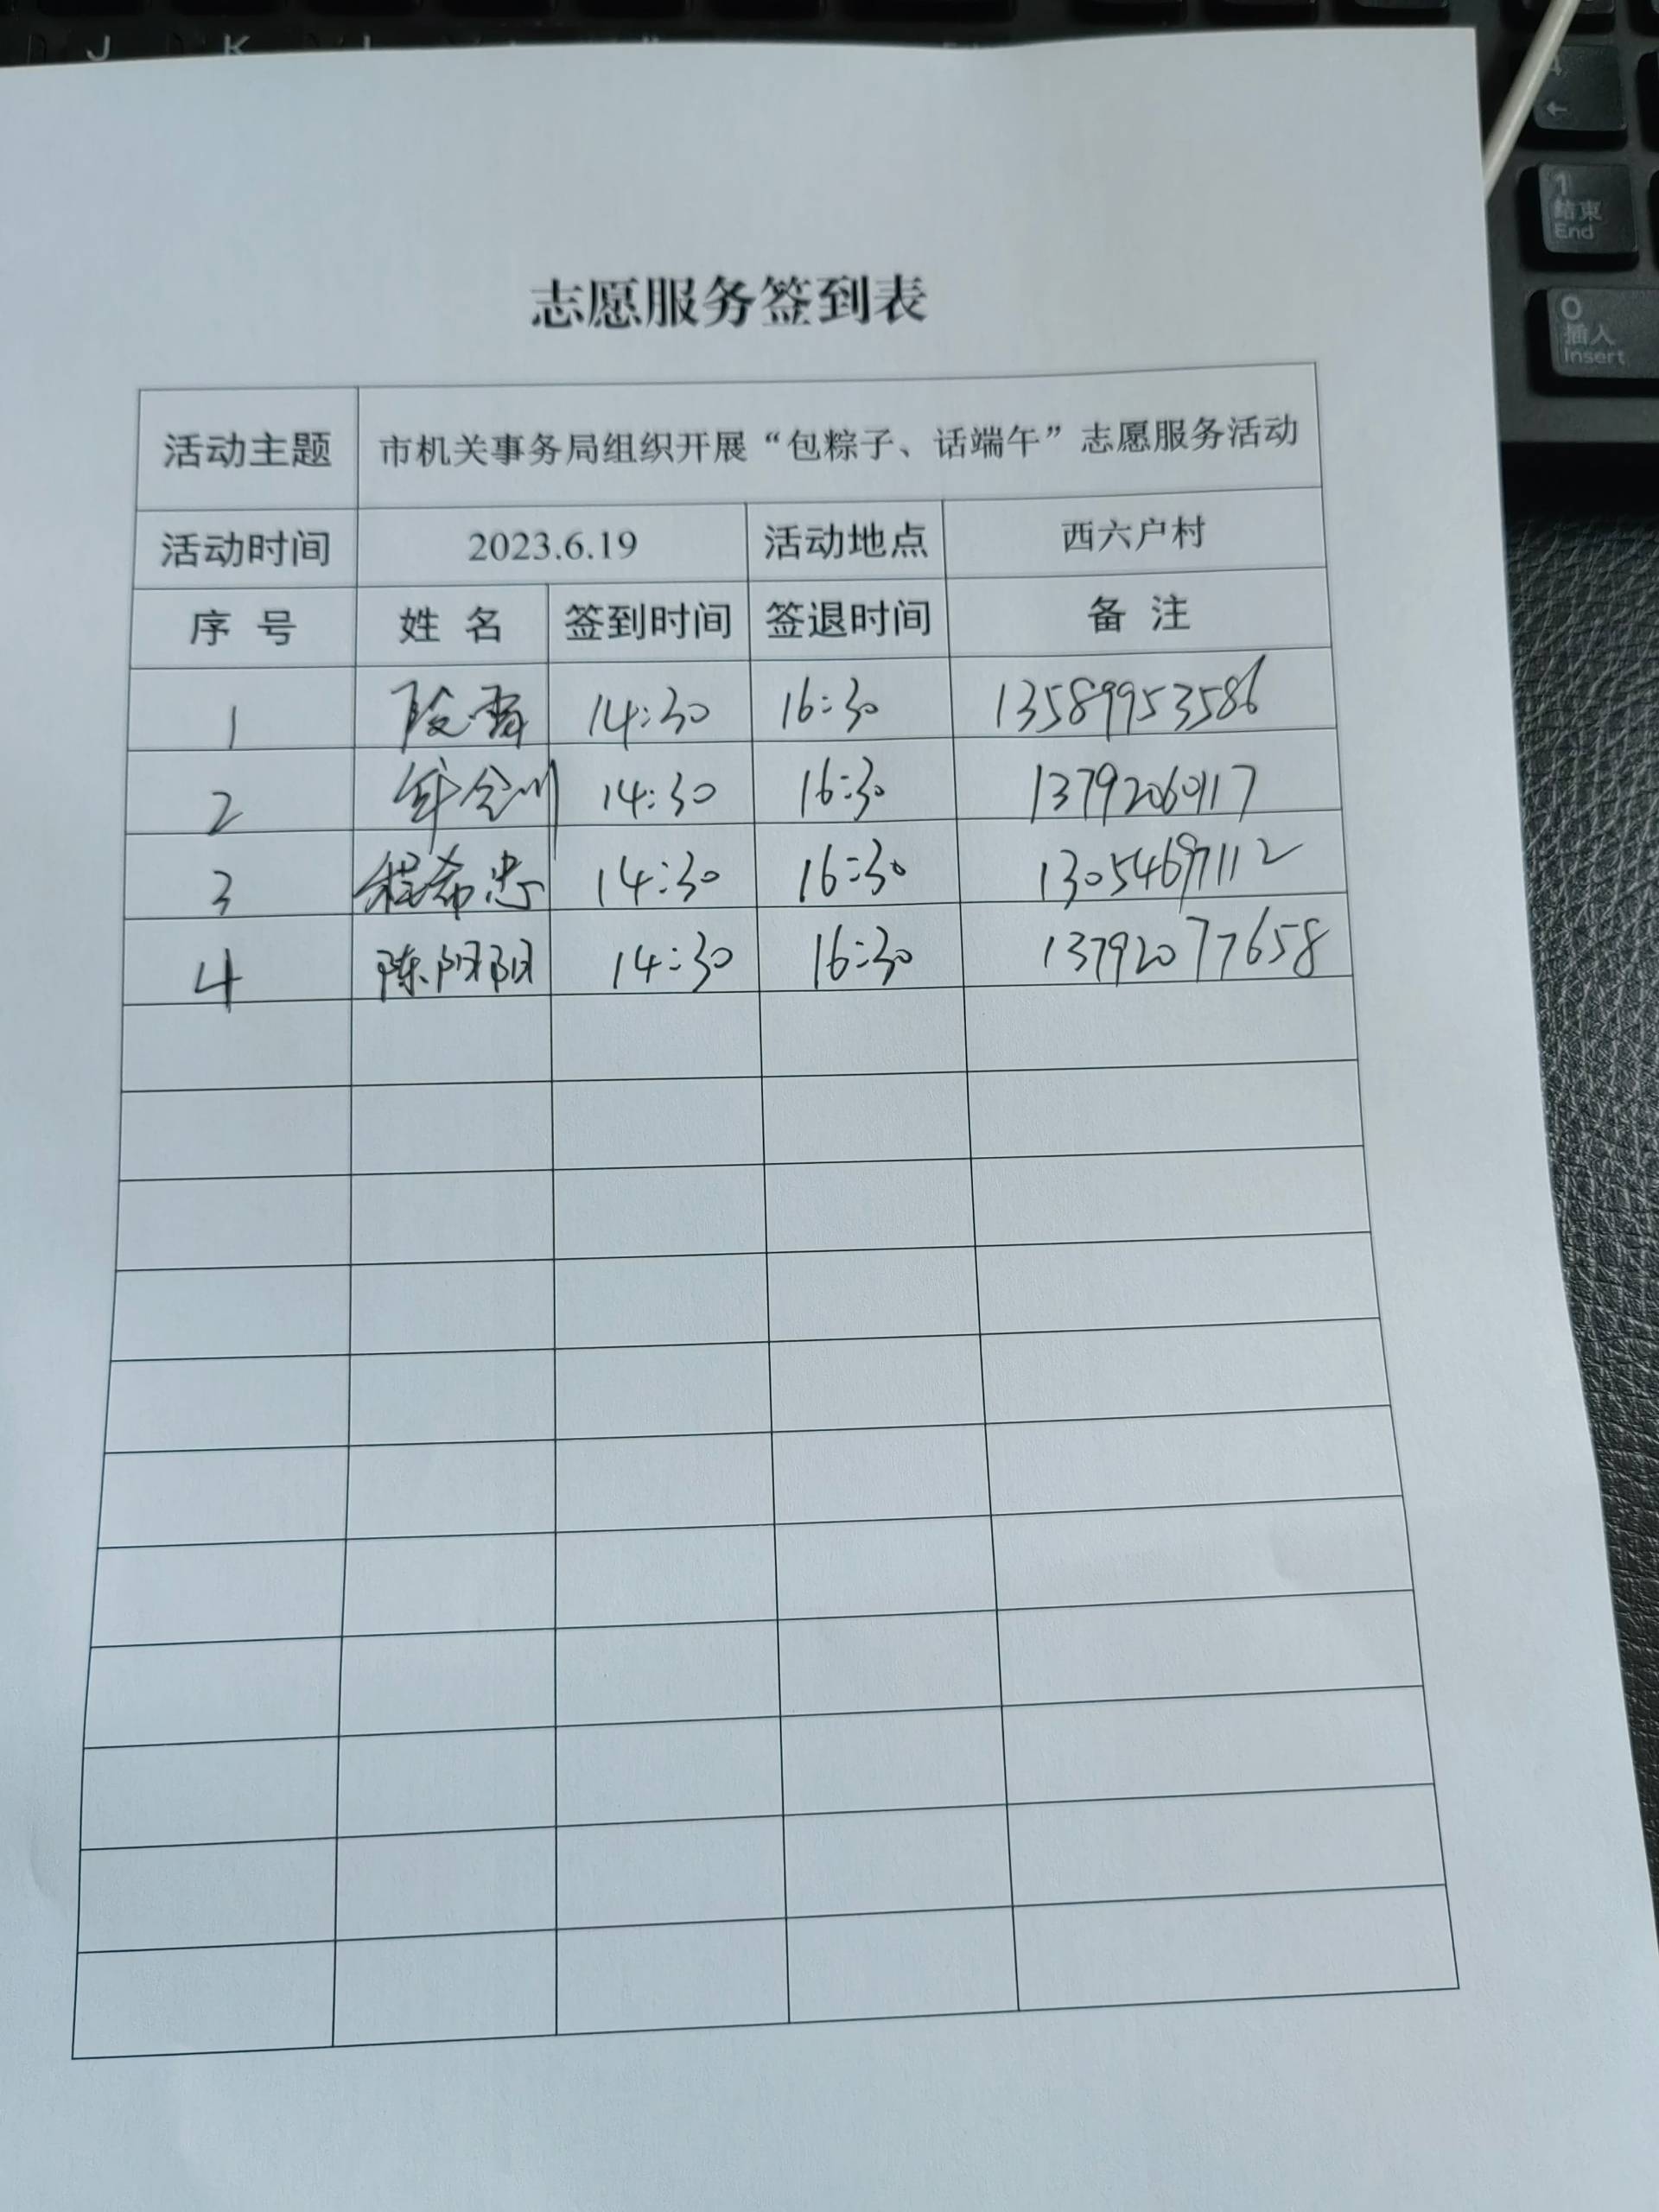 J K
结束
End
0
插入
Insert
志愿服务签到表
活动主题 市机关事务局组织开展“包粽子、话端午”志愿服务活动
活动时间 2023.6.19 活动地点 西六户村
序号 姓名 签到时间 签退时间 备注
1 14:30 16:30 13589953586
2 14:30 16:30 13792060117
3 程希忠 14:30 16:30 13054697112
4 陈阳阳 14:30 16:30 13792077658